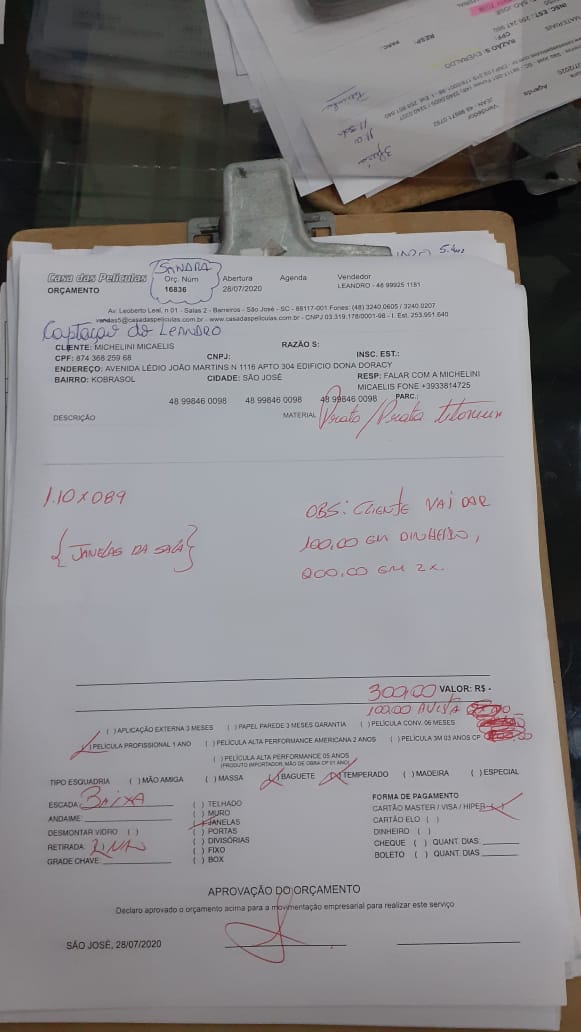 RAZÃO S: EVERALDO
CPF:
RESP:
PARC.
Vendedor
JEAN - 48 99971.0792
Agenda
SANDRA
Casa das Películas
Orç. Núm
Abertura
Agenda
Vendedor
ORÇAMENTO
16836
28/07/2020
LEANDRO - 48 99925 1181
Av: Leoberto Leal, n 01 - Salas 2 - Barreiros - São José - SC - 88117-001 Fones: (48) 3240.0605 / 3240.0207
vendas5@casadaspeliculas.com.br - www.casadaspeliculas.com.br - CNPJ 03.319.178/0001-98 - I. Est. 253.951.640
Captação do LEANDRO
CLIENTE: MICHELINI MICAELIS
RAZÃO S:
CPF: 874 368 259 68
CNPJ:
INSC. EST.:
ENDEREÇO: AVENIDA LÉDIO JOÃO MARTINS N 1116 APTO 304 EDIFICIO DONA DORACY
BAIRRO: KOBRASOL
CIDADE: SÃO JOSÉ
RESP: FALAR COM A MICHELINI
MICAELIS FONE +3933814725
48 99846 0098 48 99846 0098 48 99846 0098
PARC.:
DESCRIÇÃO
MATERIAL
Prata/Prata
1.10 x 089
{JANELAS DA SALA}
OBS: CLIENTE VAI DAR
100,00 EM DINHEIRO,
200,00 EM 2x.
300,00 VALOR: R$ -
100,00 AVISTA
( ) APLICAÇÃO EXTERNA 3 MESES ( ) PAPEL PAREDE 3 MESES GARANTIA ( ) PELÍCULA CONV. 06 MESES
( ) PELÍCULA PROFISSIONAL 1 ANO ( ) PELÍCULA ALTA PERFORMANCE AMERICANA 2 ANOS ( ) PELÍCULA 3M 03 ANOS CP
( ) PELÍCULA ALTA PERFORMANCE 05 ANOS
(PRODUTO IMPORTADOR, MÃO DE OBRA CP 01 ANO)
TIPO ESQUADRIA ( ) MÃO AMIGA ( ) MASSA ( ) BAGUETE ( ) TEMPERADO ( ) MADEIRA ( ) ESPECIAL
ESCADA: BAIXA
ANDAIME:
DESMONTAR VIDRO ( )
RETIRADA: NÃO
GRADE CHAVE:
( ) TELHADO
( ) MURO
( ) JANELAS
( ) PORTAS
( ) DIVISÓRIAS
( ) FIXO
( ) BOX
FORMA DE PAGAMENTO
CARTÃO MASTER / VISA / HIPER ( )
CARTÃO ELO ( )
DINHEIRO ( )
CHEQUE ( ) QUANT. DIAS:
BOLETO ( ) QUANT. DIAS
APROVAÇÃO DO ORÇAMENTO
Declaro aprovado o orçamento acima para a movimentação empresarial para realizar este serviço
SÃO JOSÉ, 28/07/2020